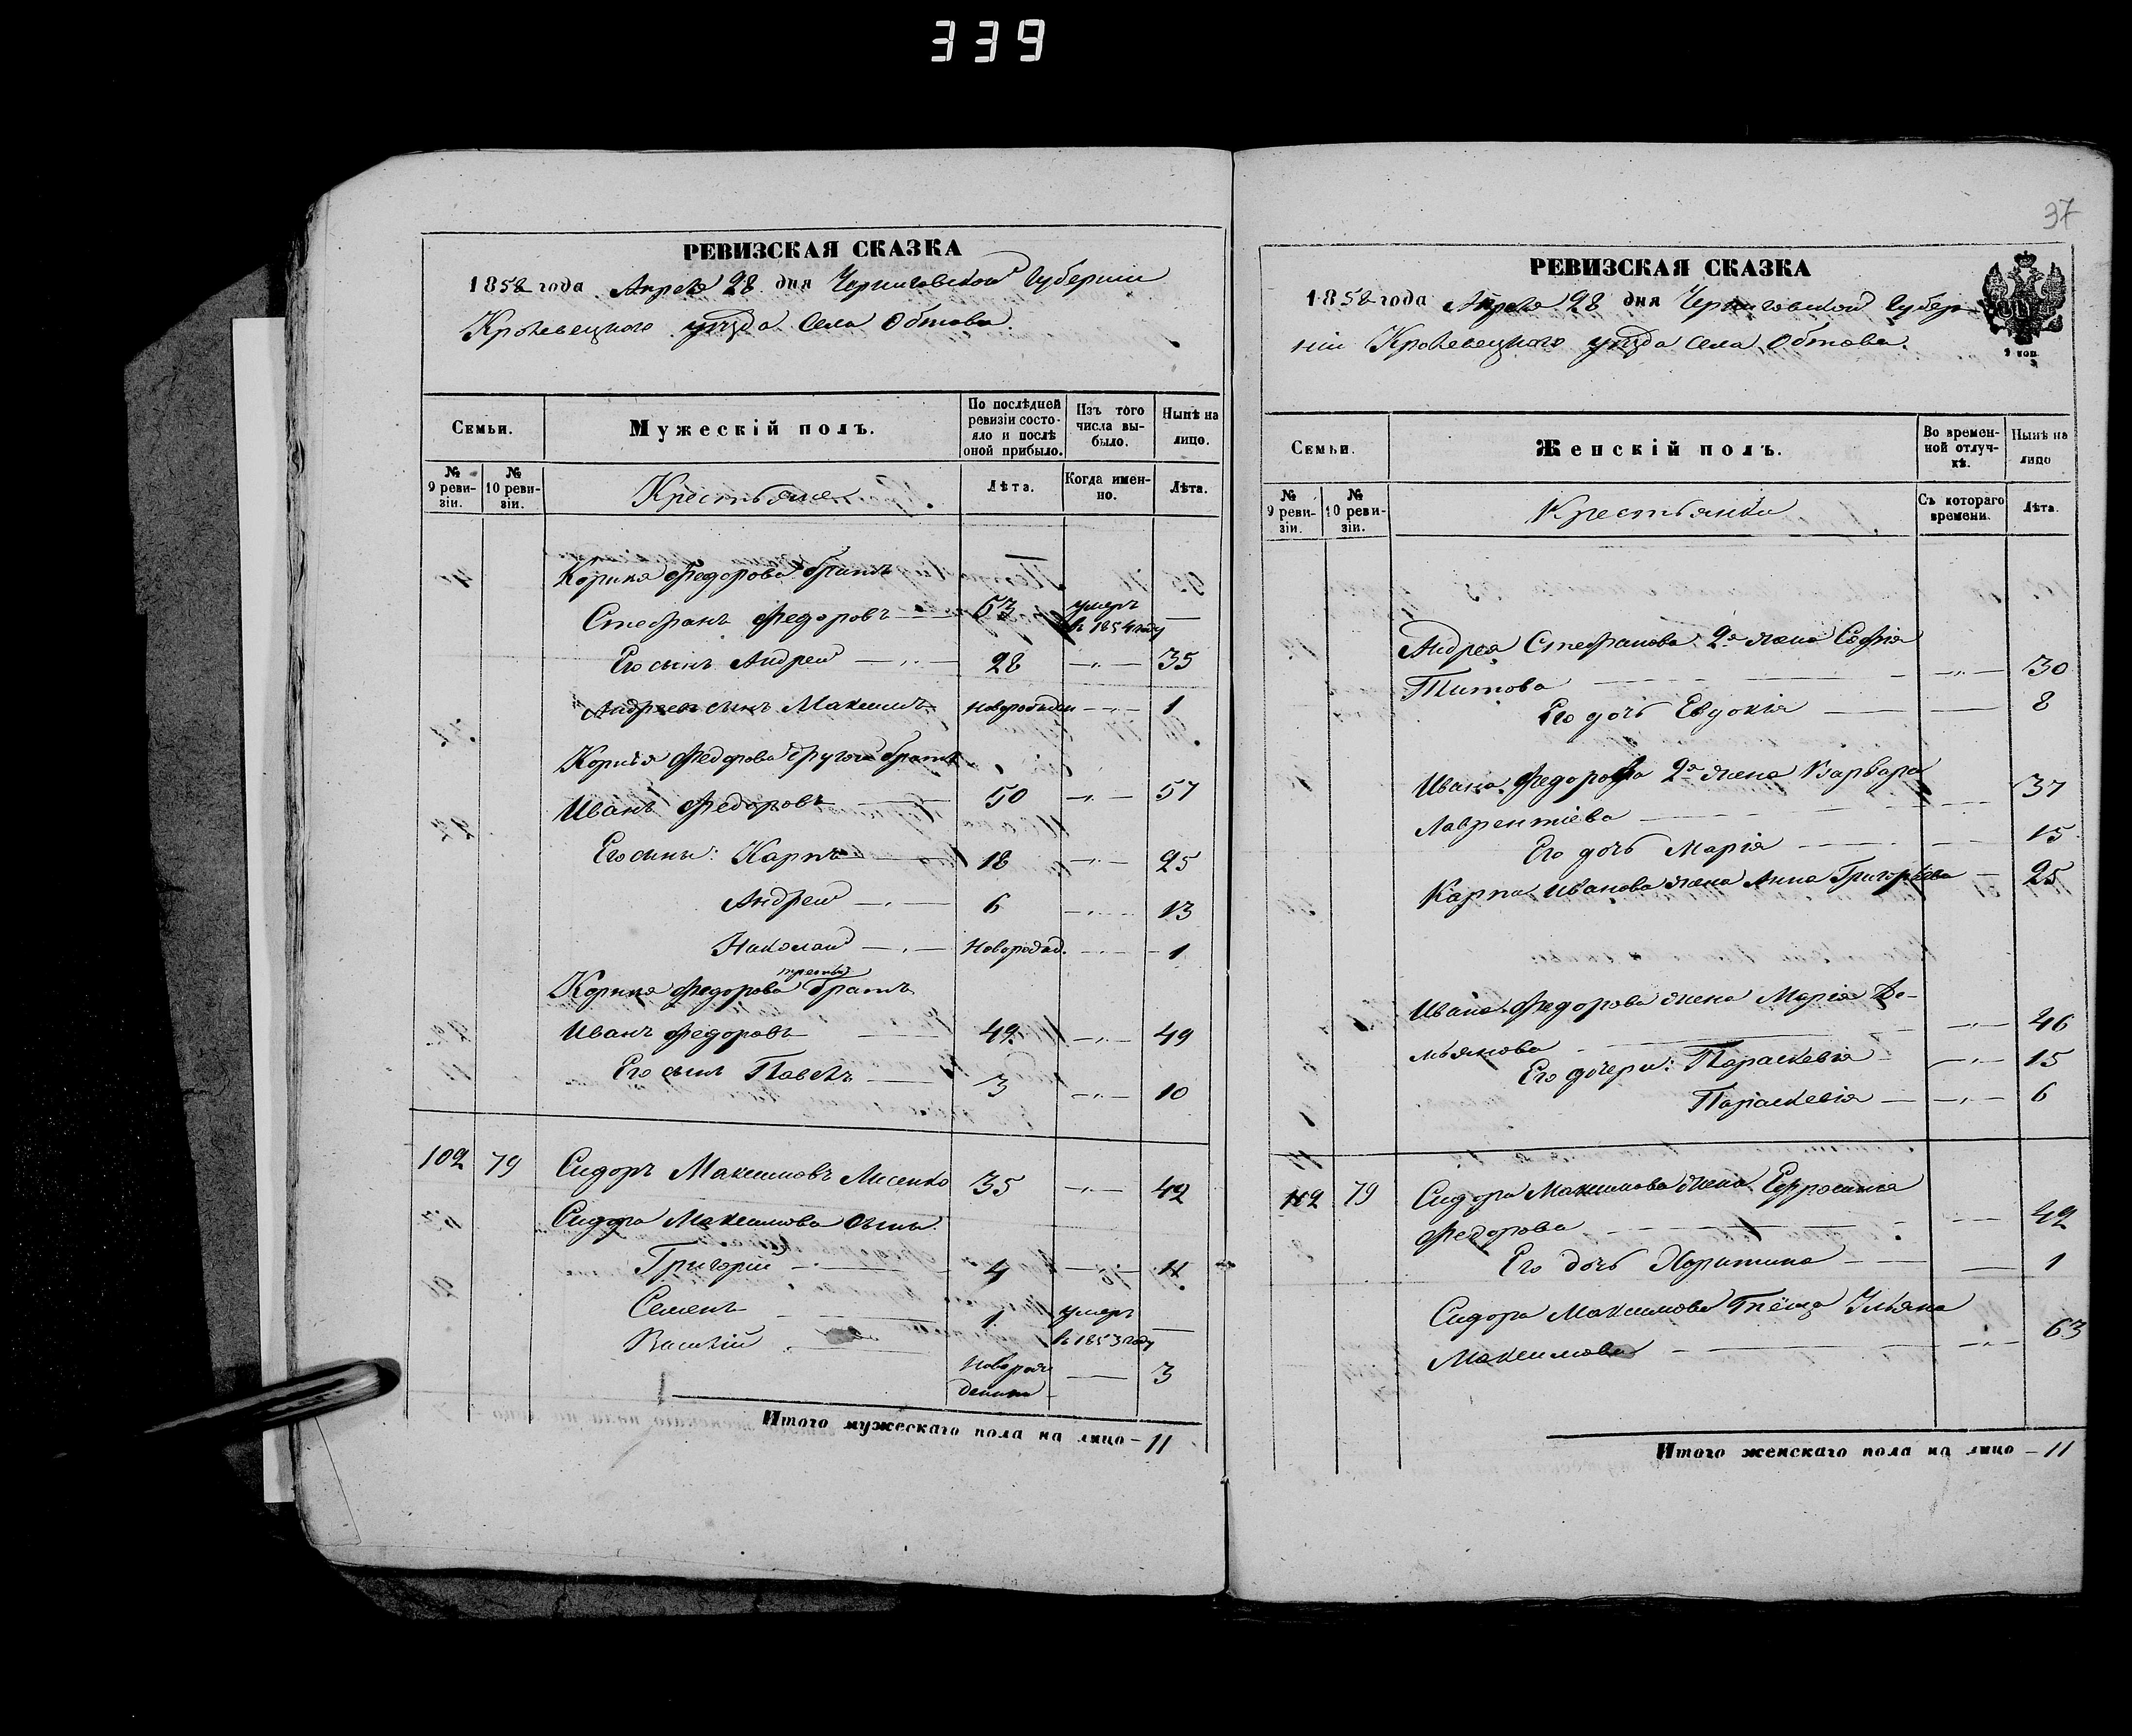 339
РЕВИЗСКАЯ СКАЗКА
1858 года Апреля 28 дня Черниговской Губернии
Кролевецкого уѣзда Села Обтова.
Семьи.
Мужескій полъ.
По послѣдней ревизіи состояло и послѣ оной прибыло.
Изъ того числа выбыло.
Нынѣ на лицо.
№ 9 ревизіи.
№ 10 ревизіи.
Крестьяне
Лѣта.
Когда именно.
Лѣта.
Корнѣя Федорова братъ
Стефанъ Федоровъ 53 умеръ въ 1854 году —
Его сынъ Андрей 28 — 35
Андреевъ сынъ Максимъ новорожден — 1
Корнѣя Федорова другой братъ
Иванъ Федоровъ 50 — 57
Его сыны: Карпъ 18 — 25
Андрей 6 — 13
Николай Новорожд. — 1
Корнѣя Федорова третій братъ
Иванъ Федоровъ 42 — 49
Его сынъ Павелъ 3 — 10
102 79 Сидоръ Максимовъ Лисенко 35 — 42
Сидора Максимова сыны
Григорій 4 — 11
Семенъ 1 умеръ въ 1853 году —
Василій новорожденный — 3
Итого мужескаго пола на лицо – 11
37
РЕВИЗСКАЯ СКАЗКА
1858 года Апреля 28 дня Черниговской Губер-
ніи Кролевецкого уѣзда Села Обтова.
Семьи.
Женскій полъ.
Во временной отлучкѣ.
Нынѣ на лицо
№ 9 ревизіи.
№ 10 ревизіи.
Крестьянки
Съ котораго времени.
Лѣта.
Андрея Стефанова 2я жена Софія
Титова — 30
Его дочь Евдокія — 8
Ивана Федорова 2я жена Варвара
Лаврентіева — 37
Его дочь Марія — 15
Карпа Иванова жена Анна Григорьева — 25
Ивана Федорова жена Марія Де-
мьянова — 46
Его дочери: Параскевія — 15
Параскевія — 6
102 79 Сидора Максимова жена Ефросинія
Федорова — 42
Его дочь Харитина — 1
Сидора Максимова тёща Ульяна
Максимова — 63
Итого женскаго пола на лицо – 11